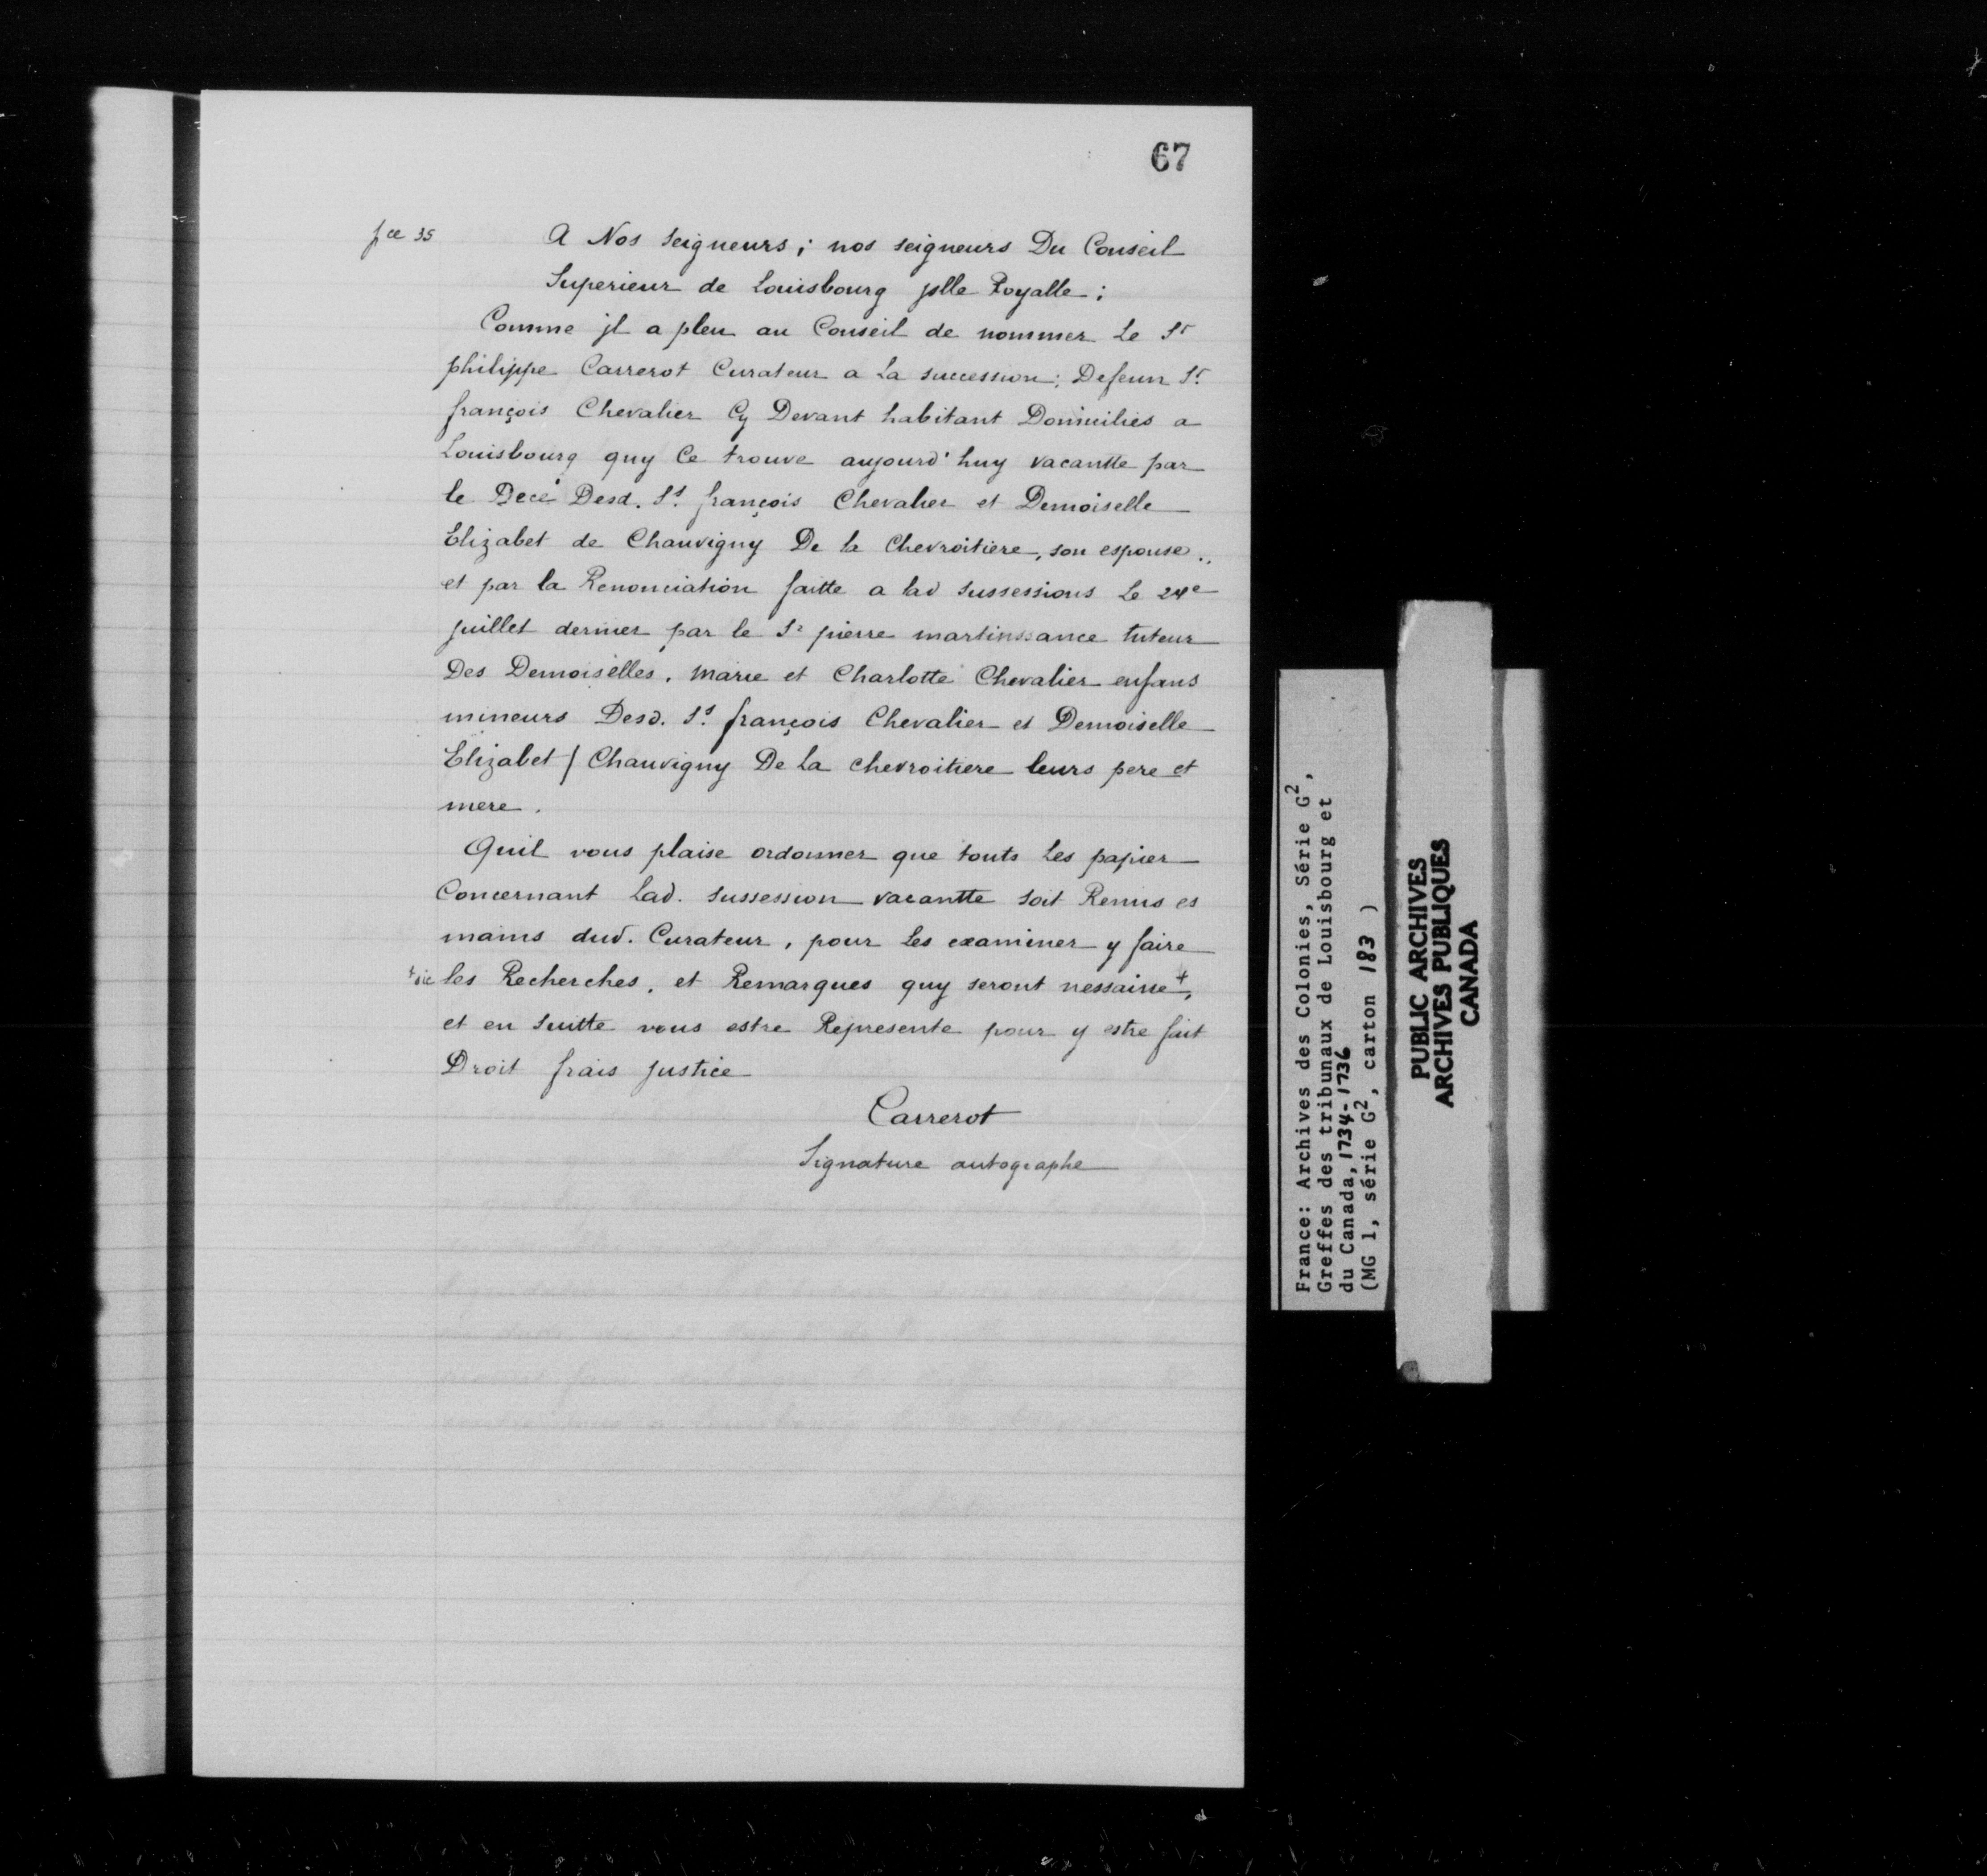 67
pce 35
A Nos Seigneurs ; nos seigneurs Du Conseil
Superieur de Louisbourg jslle Royalle ;
Comme jl a pleu au Conseil de nommer Le Sr
philippe Carrerot Curateur a La succession ; Defeun Sr
françois Chevalier Cy Devant habitant Domiciliés a
Louisbourg quy Ce trouve aujourd'huy vacantte par
le Decé Desd. Ss. françois Chevalier et Demoiselle
Elizabet de Chauvigny De la Chevroitiere, son espouse.,
et par la Renonciation faitte a lad Sussessions Le 24e
juillet dernier par le Sr pierre martinssance tuteur
Des Demoiselles, Marie et Charlotte Chevalier enfans
mineurs Desd. Ss. françois Chevalier et Demoiselle
Elizabet / Chauvigny De La chevroitiere leurs pere et
mere.
Quil vous plaise ordonner que touts Les papier
Concernant Lad. sussession vacantte soit Remis es
mains dud. Curateur, pour Les examiner y faire
+ sic les Recherches, et Remarques quy seront nessaire +,
et en Suitte vous estre Represente pour y estre fait
Droit frais justice
Carrerot
Signature autographe
France: Archives des Colonies, Série G2,
Greffes des tribunaux de Louisbourg et
du Canada, 1734-1736
(MG 1, série G2, carton 183 )
PUBLIC ARCHIVES
ARCHIVES PUBLIQUES
CANADA